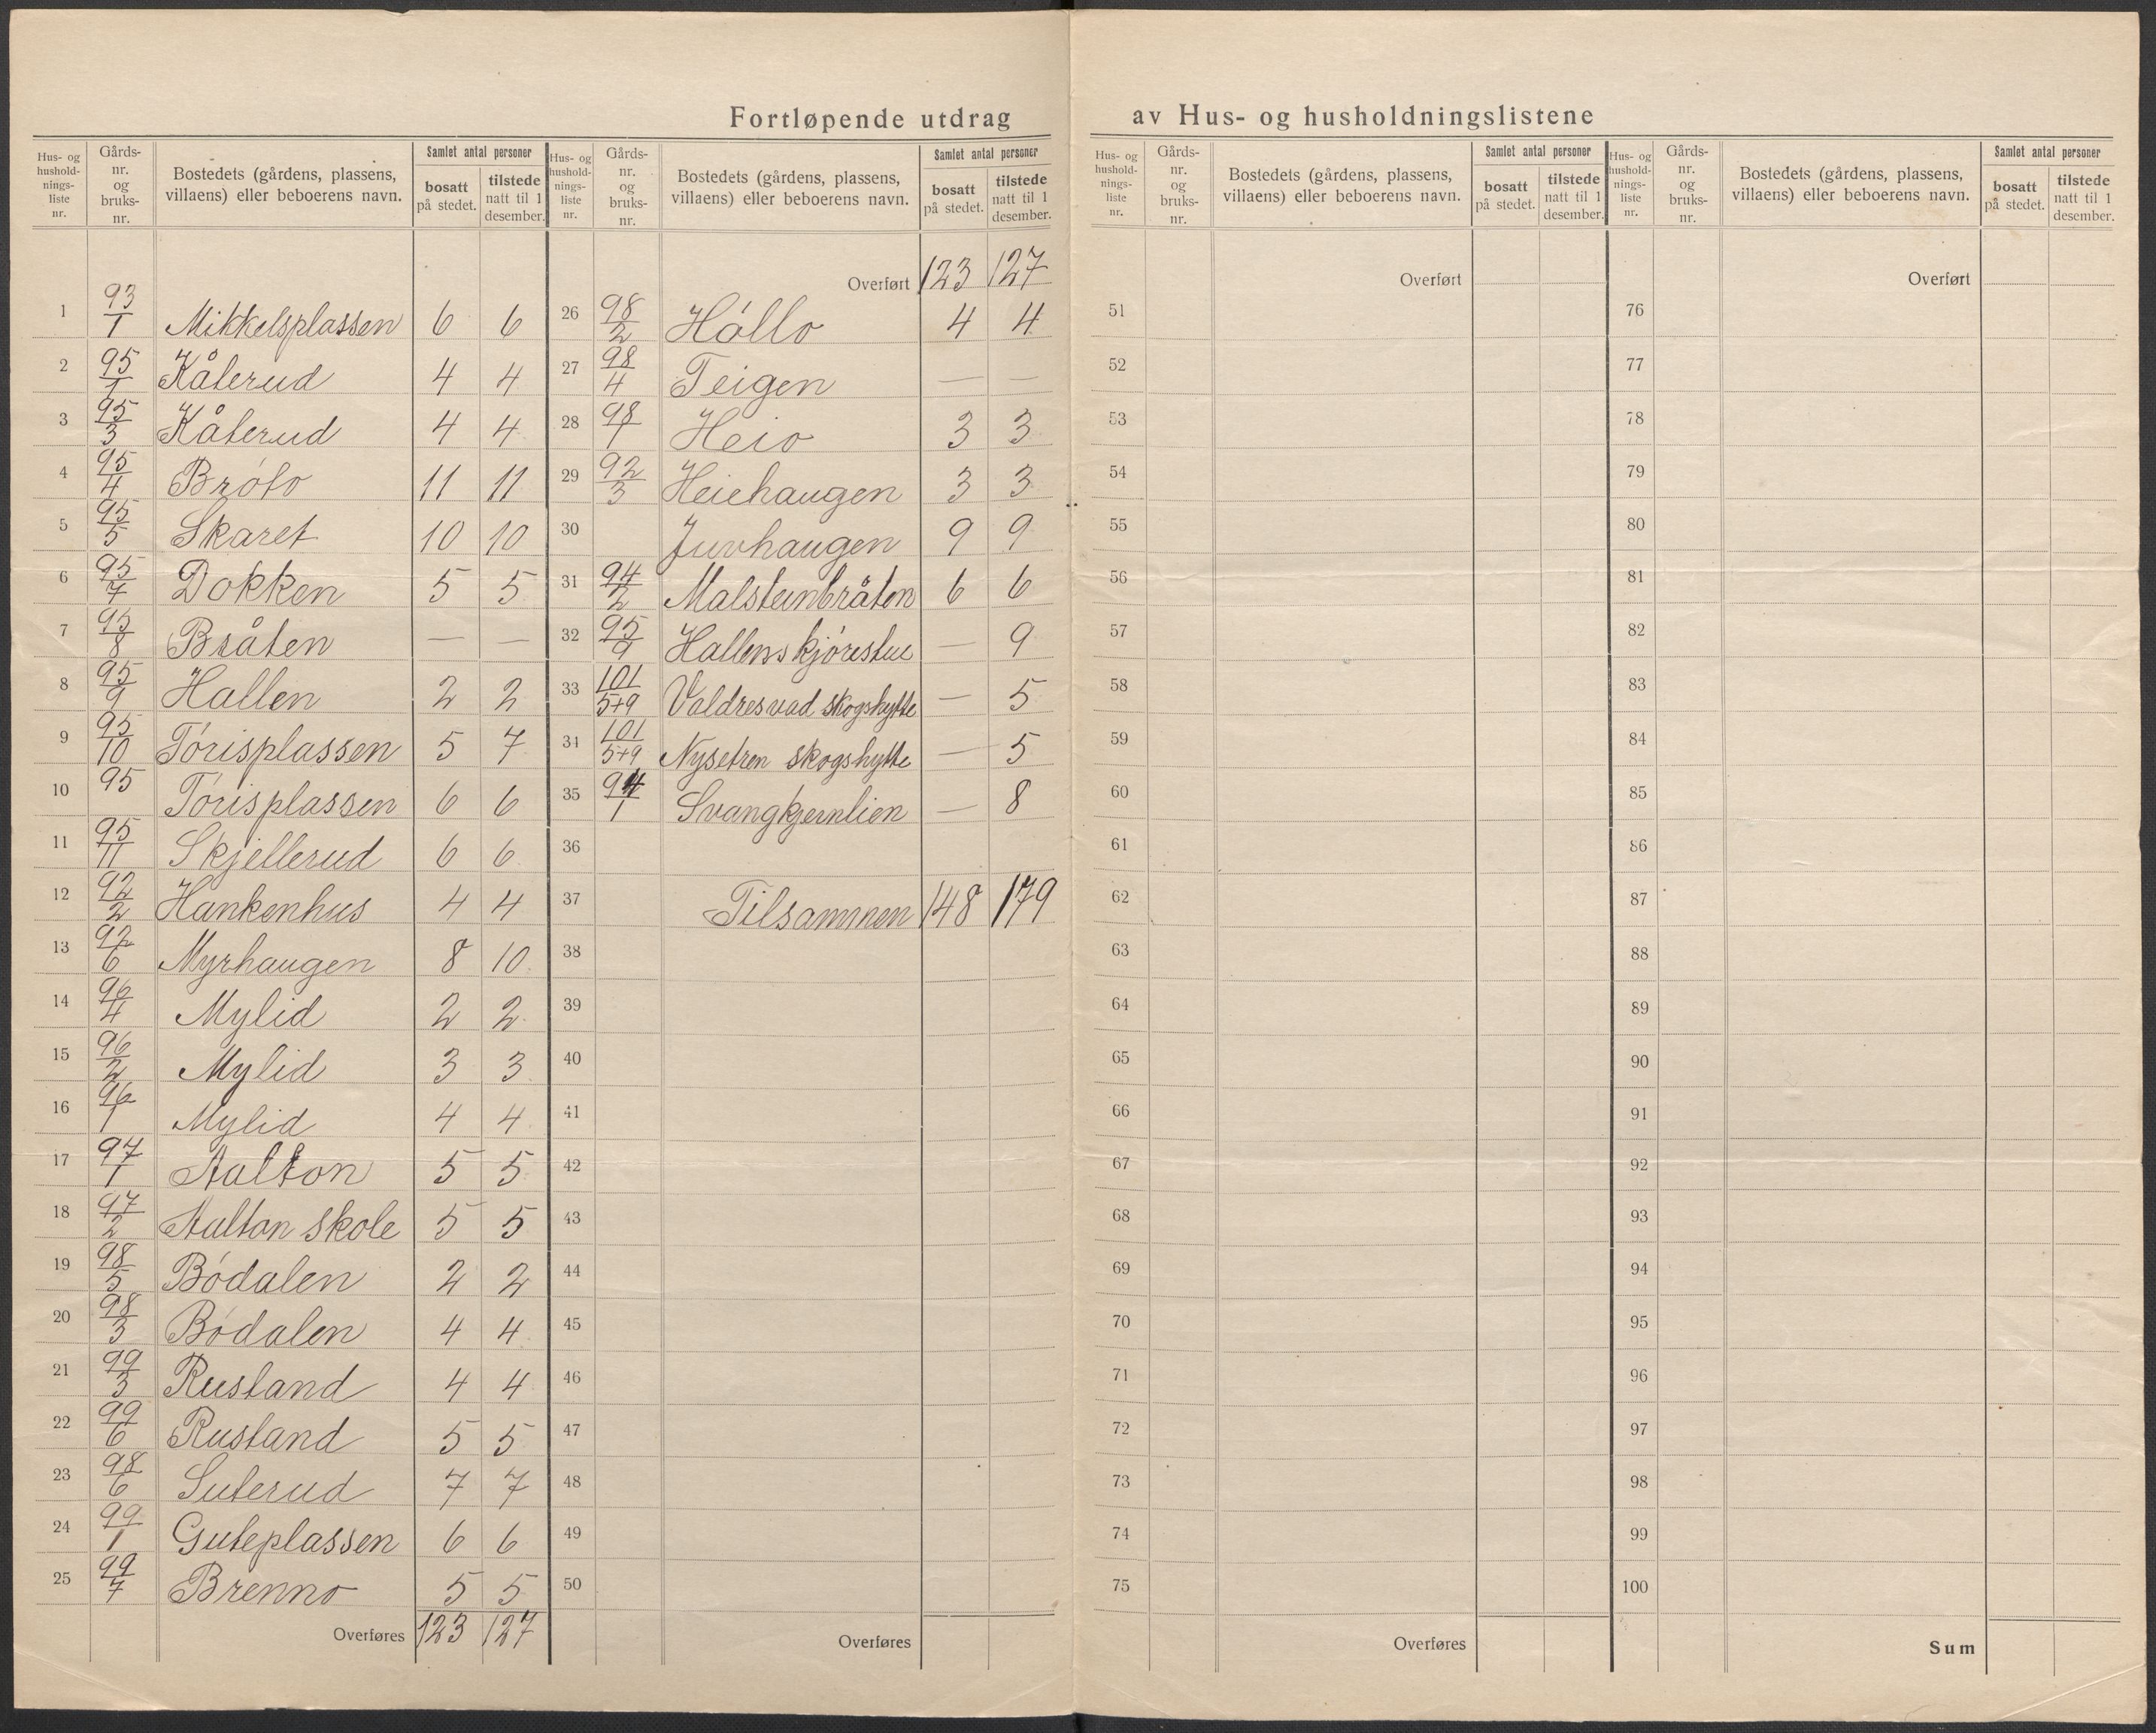 Fortløpende utdrag av Hus- og husholdningslistene
Hus- og husholdnings-liste nr. Gårds-nr. og bruks-nr. Bostedets (gårdens, plassens, villaens) eller beboerens navn. Samlet antal personer bosatt på stedet. tilstede natt til 1 desember.
1 93/1 Mikkelsplassen 6 6
2 95/1 Kåterud 4 4
3 95/3 Kåterud 4 4
4 95/4 Bróto 11 11
5 95/5 Skaret 10 10
6 95/7 Dokken 5 5
7 95/8 Bråten — —
8 95/9 Hallen 2 2
9 95/10 Tórisplassen 5 7
10 95 Tórisplassen 6 6
11 95/11 Skjellerud 6 6
12 92/2 Hankenhus 4 4
13 92/6 Myrhaugen 8 10
14 96/4 Mylid 2 2
15 96/2 Mylid 3 3
16 96/1 Mylid 4 4
17 97/1 Aalton 5 5
18 97/2 Aalton skole 5 5
19 98/5 Bódalen 2 2
20 98/3 Bódalen 4 4
21 99/3 Rustand 4 4
22 99/6 Rustand 5 5
23 98/6 Suterud 7 7
24 99/1 Guteplassen 6 6
25 99/7 Brenno 5 5
Overføres 123 127
Hus- og husholdnings-liste nr. Gårds-nr. og bruks-nr. Bostedets (gårdens, plassens, villaens) eller beboerens navn. Samlet antal personer bosatt på stedet. tilstede natt til 1 desember.
Overført 123 127
26 98/2 Hóllo 4 4
27 98/4 Teigen — —
28 98/1 Heio 3 3
29 92/3 Heiehaugen 3 3
30 Juvhaugen 9 9
31 94/2 Malsteinbråten 6 6
32 95/9 Hallens kjórestue — 9
33 101/5+9 Valdresvad skogshytte — 5
34 101/5+9 Nysetren skogshytte — 5
35 94/1 Svangkjernlien — 8
36
37 Tilsammen 148 179
38
39
40
41
42
43
44
45
46
47
48
49
50
Overføres
Hus- og husholdnings-liste nr. Gårds-nr. og bruks-nr. Bostedets (gårdens, plassens, villaens) eller beboerens navn. Samlet antal personer bosatt på stedet. tilstede natt til 1 desember.
Overført
51
52
53
54
55
56
57
58
59
60
61
62
63
64
65
66
67
68
69
70
71
72
73
74
75
Overføres
Hus- og husholdnings-liste nr. Gårds-nr. og bruks-nr. Bostedets (gårdens, plassens, villaens) eller beboerens navn. Samlet antal personer bosatt på stedet. tilstede natt til 1 desember.
Overført
76
77
78
79
80
81
82
83
84
85
86
87
88
89
90
91
92
93
94
95
96
97
98
99
100
Sum